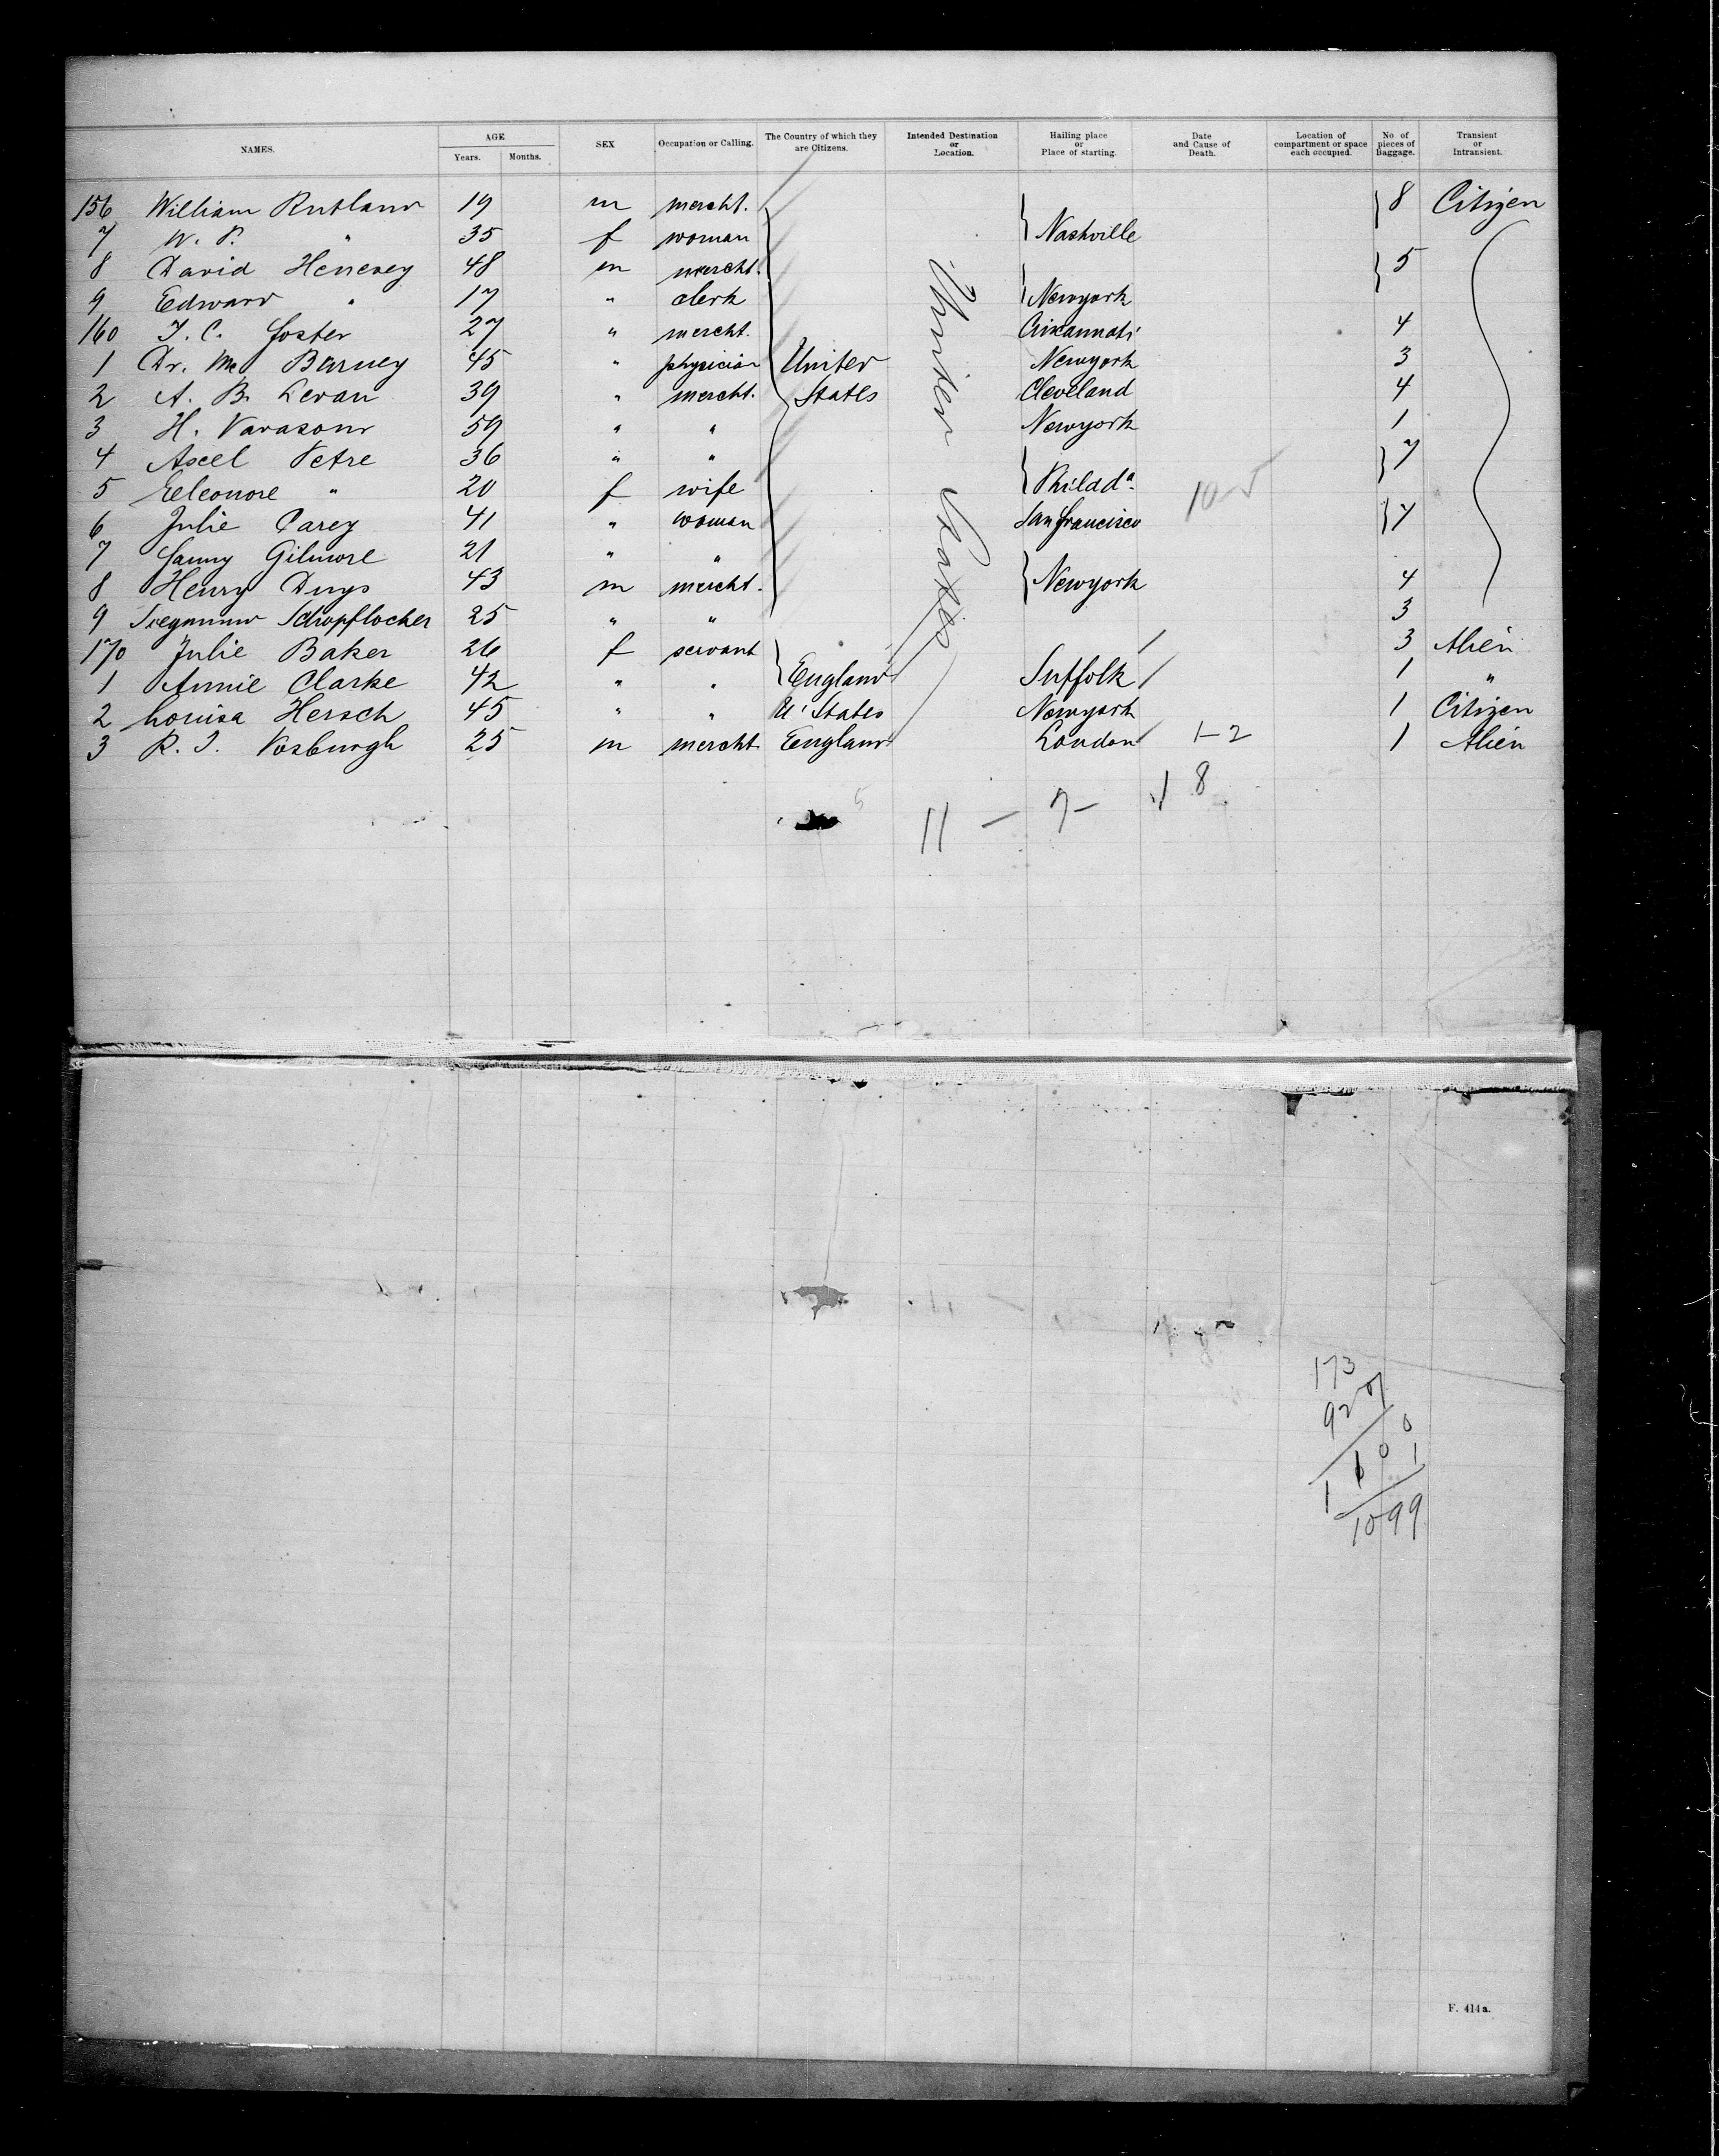 NAMES. AGE Years. Months. SEX Occupation or Calling. The Country of which they are Citizens. Intended Destination or Location. Hailing place or Place of starting. Date and Cause of Death. Location of compartment or space each occupied. No. of pieces of Baggage. Transient or Intransient.
156 William Rutland 19 m mercht. } Nashville } 8 Citizen
7 W. P. " 35 f woman
8 David Henesey 48 m mercht. } Newyork } 5
9 Edward " 17 " clerk
160 T. C. Foster 27 " mercht. Cincannati 4
1 Dr. Mc Barney 45 " physician United Newyork 3
2 A. B. Levan 39 " mercht. States Cleveland 4
3 H. Varasour 59 " " Newyork 1
4 Axel Petre 36 " " } Philada. } 7
5 Eeleonore " 20 f wife
6 Julie Carey 41 " woman San Francisco } 7
7 Fanny Gilmore 21 " "
8 Henry Duys 43 m mercht. } Newyork 4
9 Siegmund Schopflocher 25 " " 3
170 Julie Baker 26 f servant 3 Alien
1 Annie Clarke 42 " " } England Suffolk 1 "
2 Louisa Hersch 45 " " U' States Newyork 1 Citizen
3 R. T. Vosburgh 25 m mercht. England London 1-2 1 Alien
United States
10-5
5
11 - 7- 18
173
927
1100
1
1099
F. 414a.